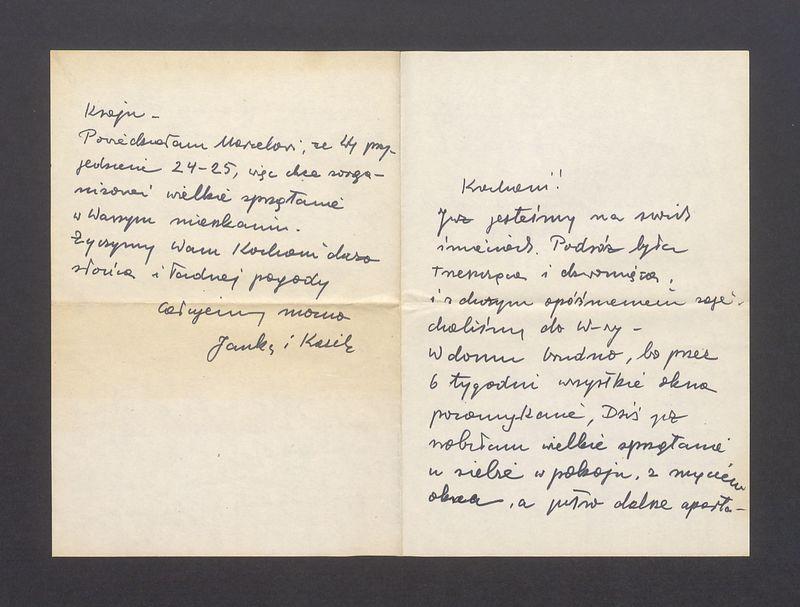 Kraju -
Powiedziałam Marcelowi, że Wy przy-
jedziecie 24-25, więc chce zorga-
nizować wielkie sprzątanie
w Waszym mieszkaniu.
Życzymy Wam Kochani dużo
słońca i ładnej pogody
Całujemy mocno
Janka i Kazik
Kochani!!
Już jesteśmy na swoich
śmieciach. Podróż była
i
i z dużym opóźnieniem zaje-
chaliśmy do W-wy -
W domu brudno, bo przez
6 tygodni wszystkie okna
pozamykane, Dziś już
robiłam wielkie sprzątanie
u siebie w pokoju, z myciem
okna, a jutro dalsze aparta-